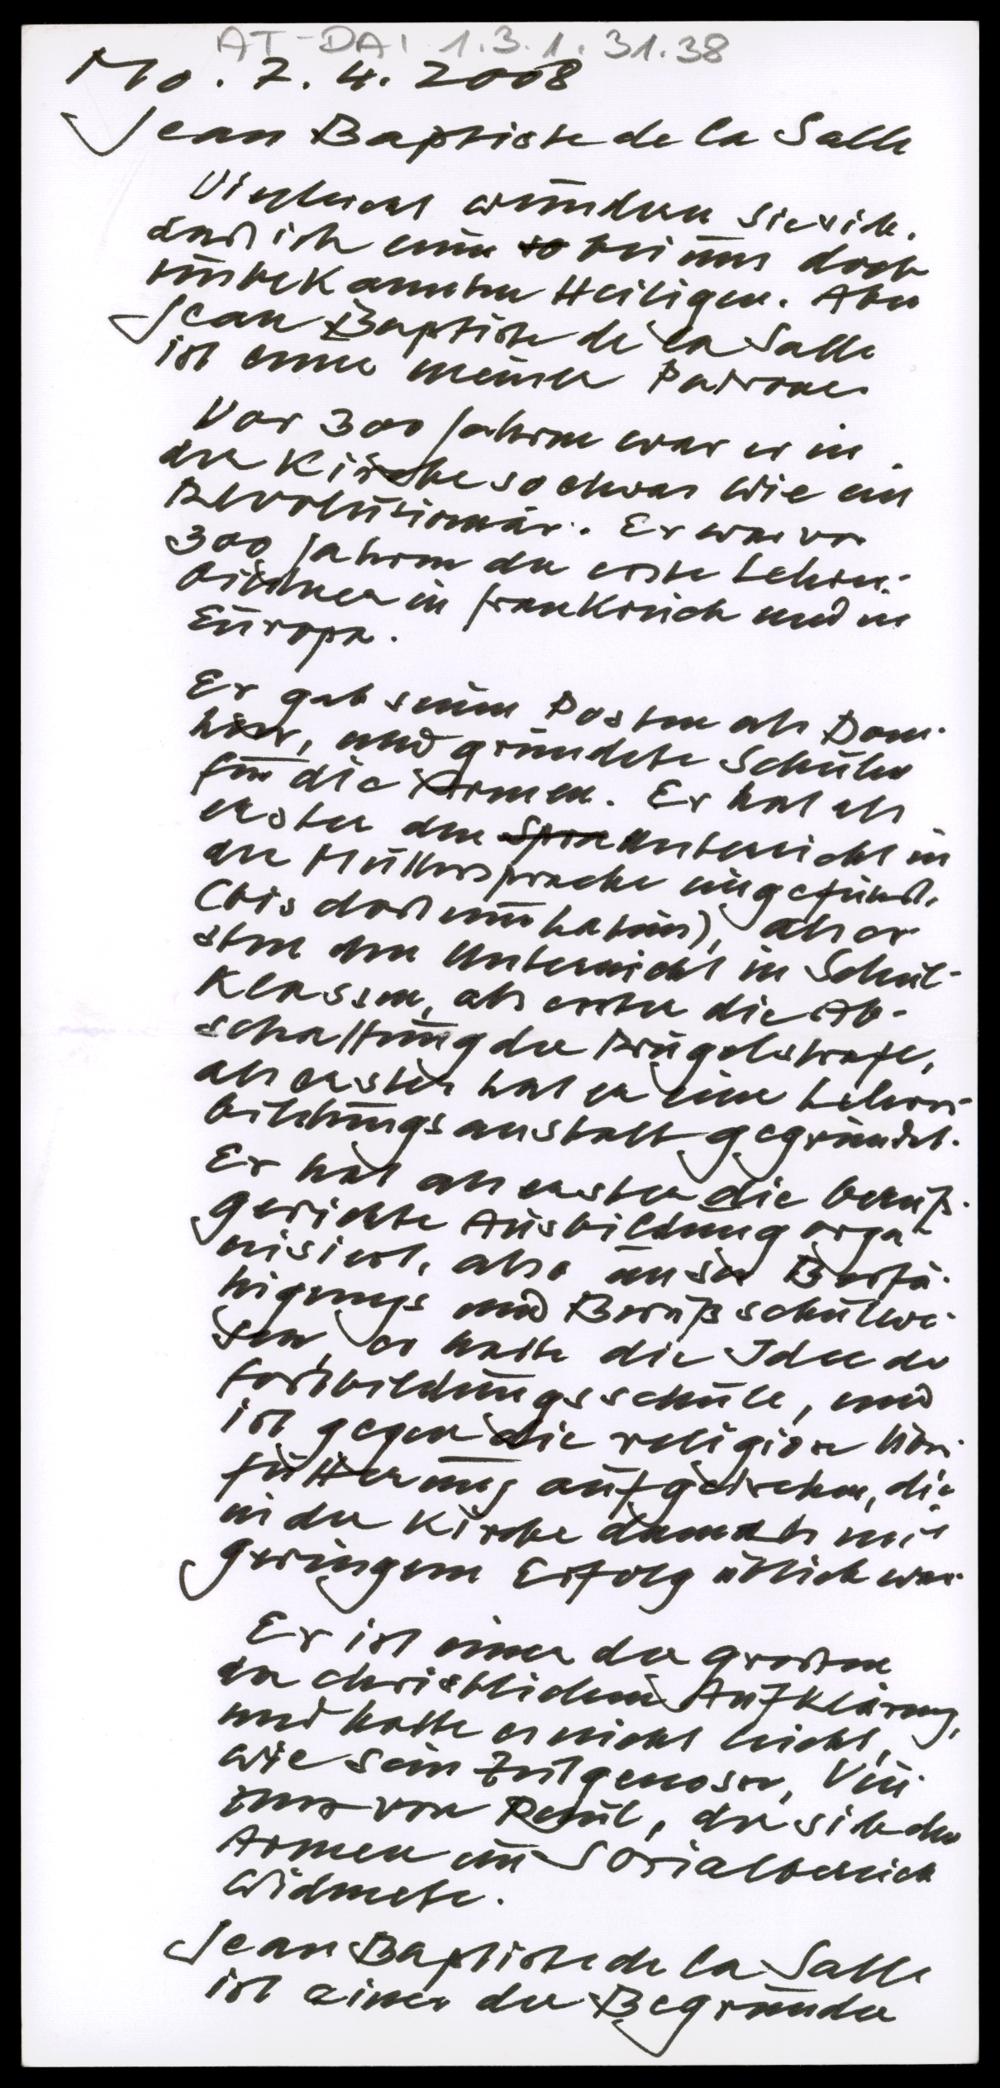 AT-DA: 1.3.1.31.38
Mo. 7.4.2008
Jean Baptiste de la Salle
Vielleicht wundern Sie sich,
daß ich einen so bei uns doch
unbekannten Heiligen. Aber
Jean Baptiste de la Salle
ist einer meiner Patrone
Vor 300 Jahren war er in
der Kirche so etwas wie ein
Revolutionär. Er war vor
300 Jahren der erste Lehrer-
bildner in Frankreich und in
Europa.
Er gab seinen Posten als Dom-
herr, und gründete Schulen
für die Armen. Er hat als
erster den Unterricht in
der Muttersprache eingeführt,
(bis dort nur Latein), als er-
ster den Unterricht in Schul-
klassen, als erster die Ab-
schaffung der Prügelstrafe,
als erster hat er eine Lehrer-
bildungsanstalt gegründet.
Er hat als erster die berufs-
gerichte Ausbildung orga-
nisiert, also unser
und Berufsschulwe-
sen, er hatte die Idee der
Fortbildungsschule, und
ist gegen die religiöse Über-
fütterung aufgetreten, die
in der Kirche damals mit
geringem Erfolg üblich war
Er ist einer der großen
der christlichen Aufklärung,
und hatte es nicht leicht,
wie sein Zeitgenosse, Vin-
zenz von Paul, der sich den
Armen im Sozialbereich
widmete.
Jean Baptiste de la Salle
ist einer der Begründer